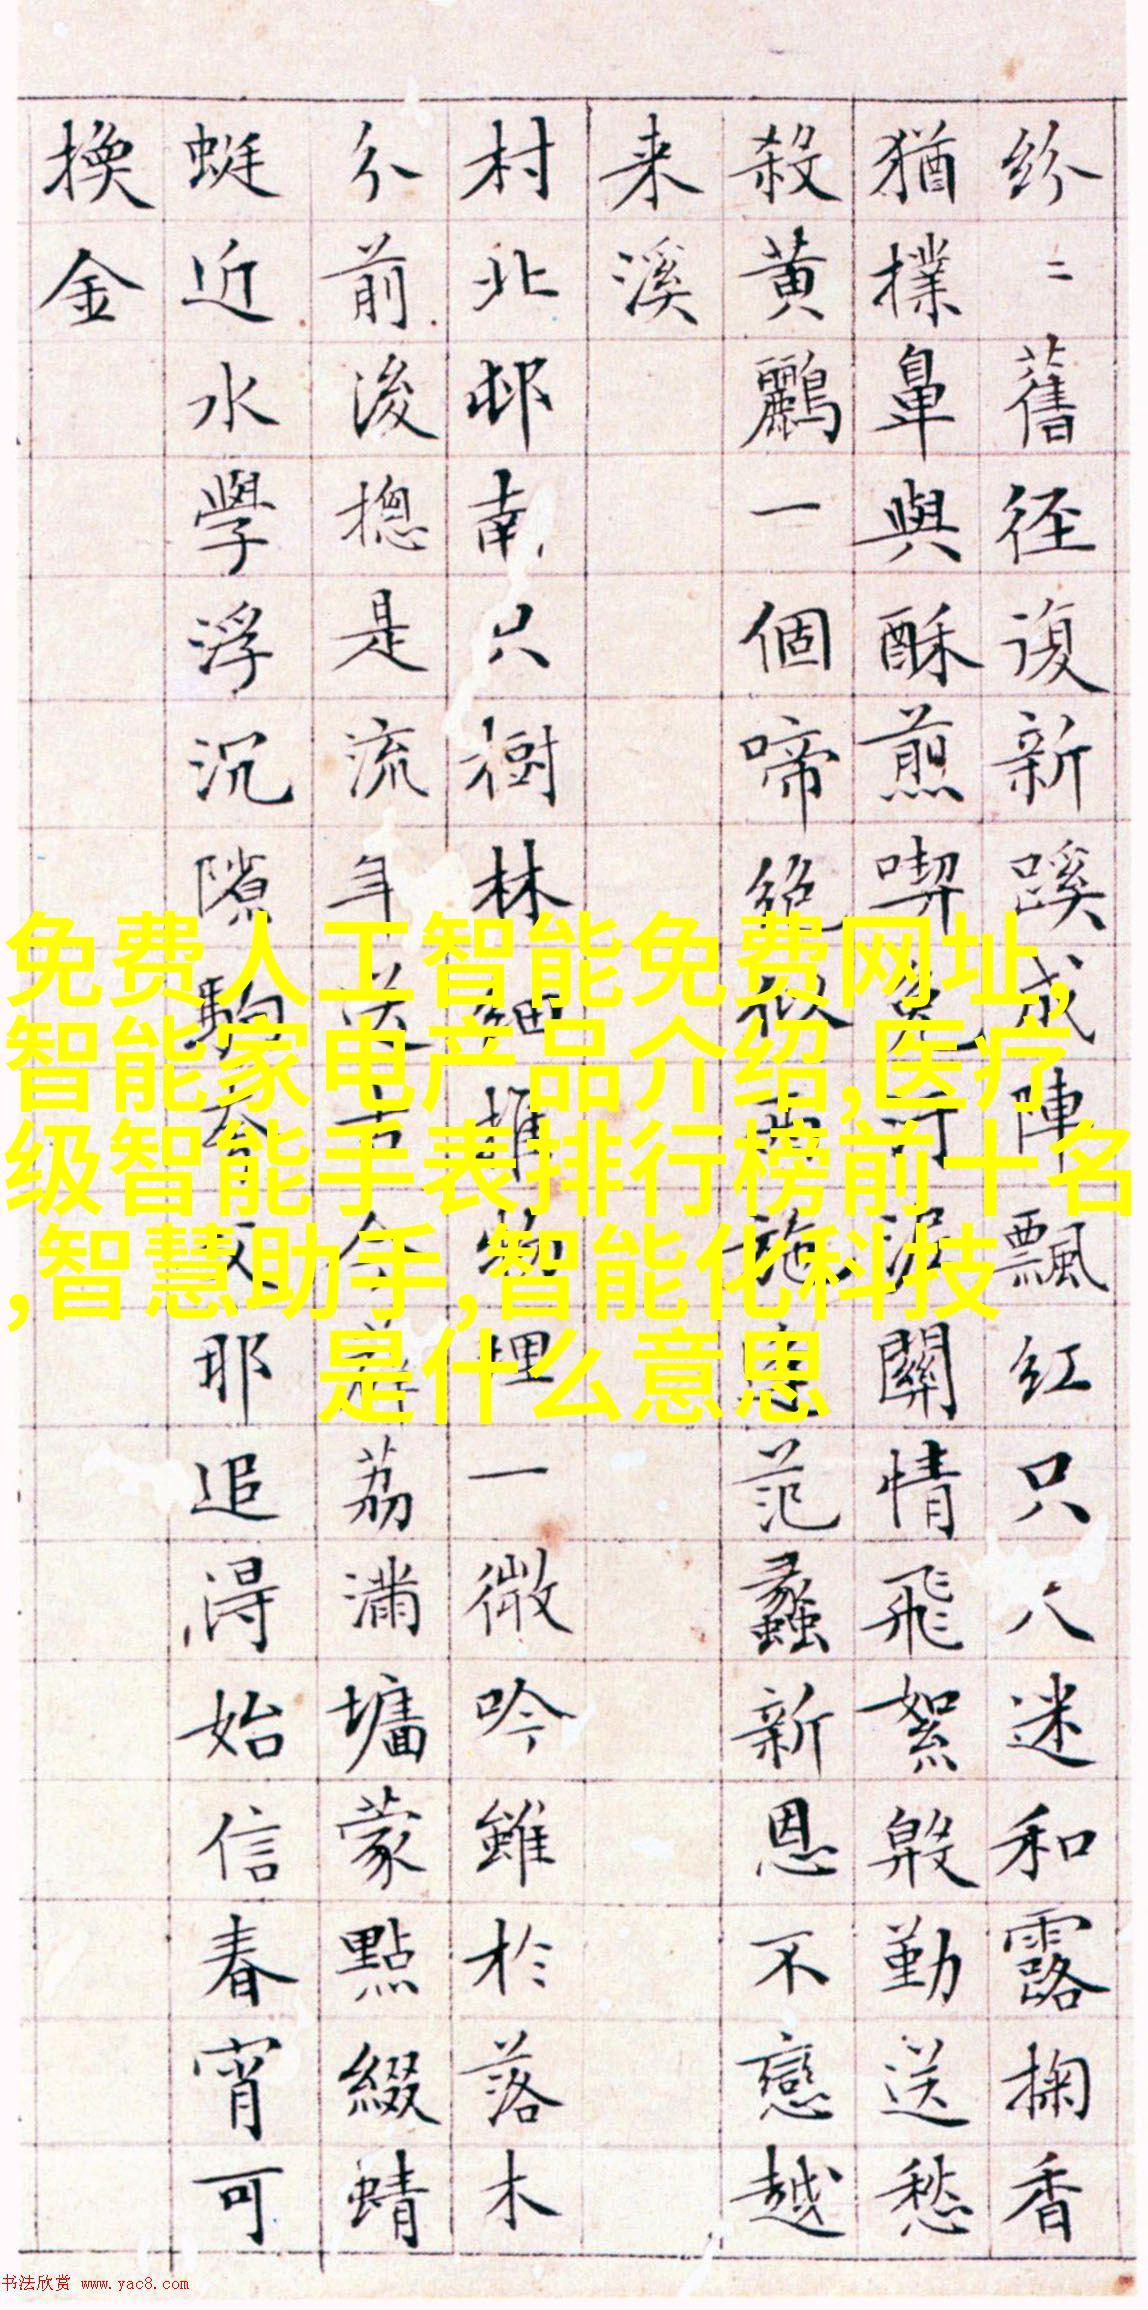 紛二舊徑復新蹊成陣飄紅只迷和露掬香
猶撲鼻與酥煎喫免泥關情飛絮殷勤送愁
殺黃鸝一個啼絕似施范蠡新恩不戀越
来溪
村北邨南只樹林細推物理一微吟雖於落木
分前後摠是流年送古今荔滿墉蒙點綴蜻
蜓近水學浮沉隙駒耶追得始信春宵可
換金
免费人工智能免费网址,
智能家电产品介绍,医疗
级智能手表排行榜前十名
,智慧助手,智能化科技
是什么意思
书法欣赏 www.yac8.com